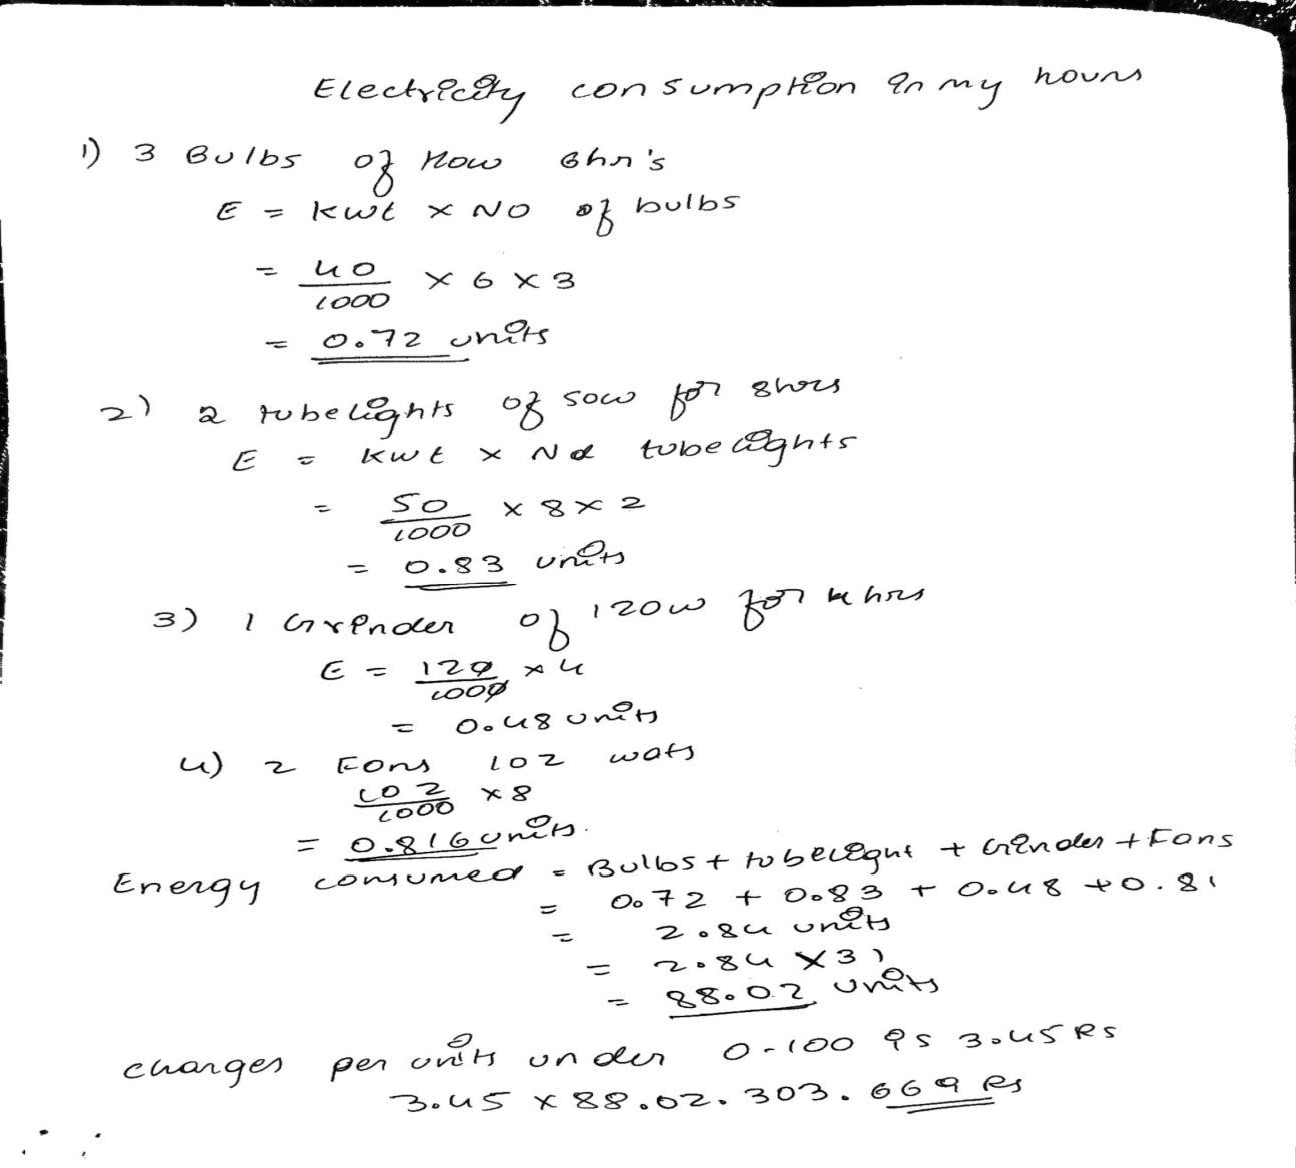 Electricity consumption in my hours
1) 3 Bulbs of 40w 6hr's
E = kwt x NO of bulbs
= 40/1000 x 6 x 3
= 0.72 units
2) 2 tubelights of 50w for 8hrs
E = kwt x No tubelights
= 50/1000 x 8 x 2
= 0.83 units
3) 1 Grinder of 120w for 4 hrs
E = 120/1000 x 4
= 0.48 units
4) 2 Fans 102 wats
102/1000 x 8
= 0.816 units.
Energy consumed = Bulbs + tubelight + Grinder + Fans
= 0.72 + 0.83 + 0.48 + 0.81
= 2.84 units
= 2.84 x 31
= 88.02 units
charges per units under 0-100 is 3.45 Rs
3.45 x 88.02. 303.669 Rs